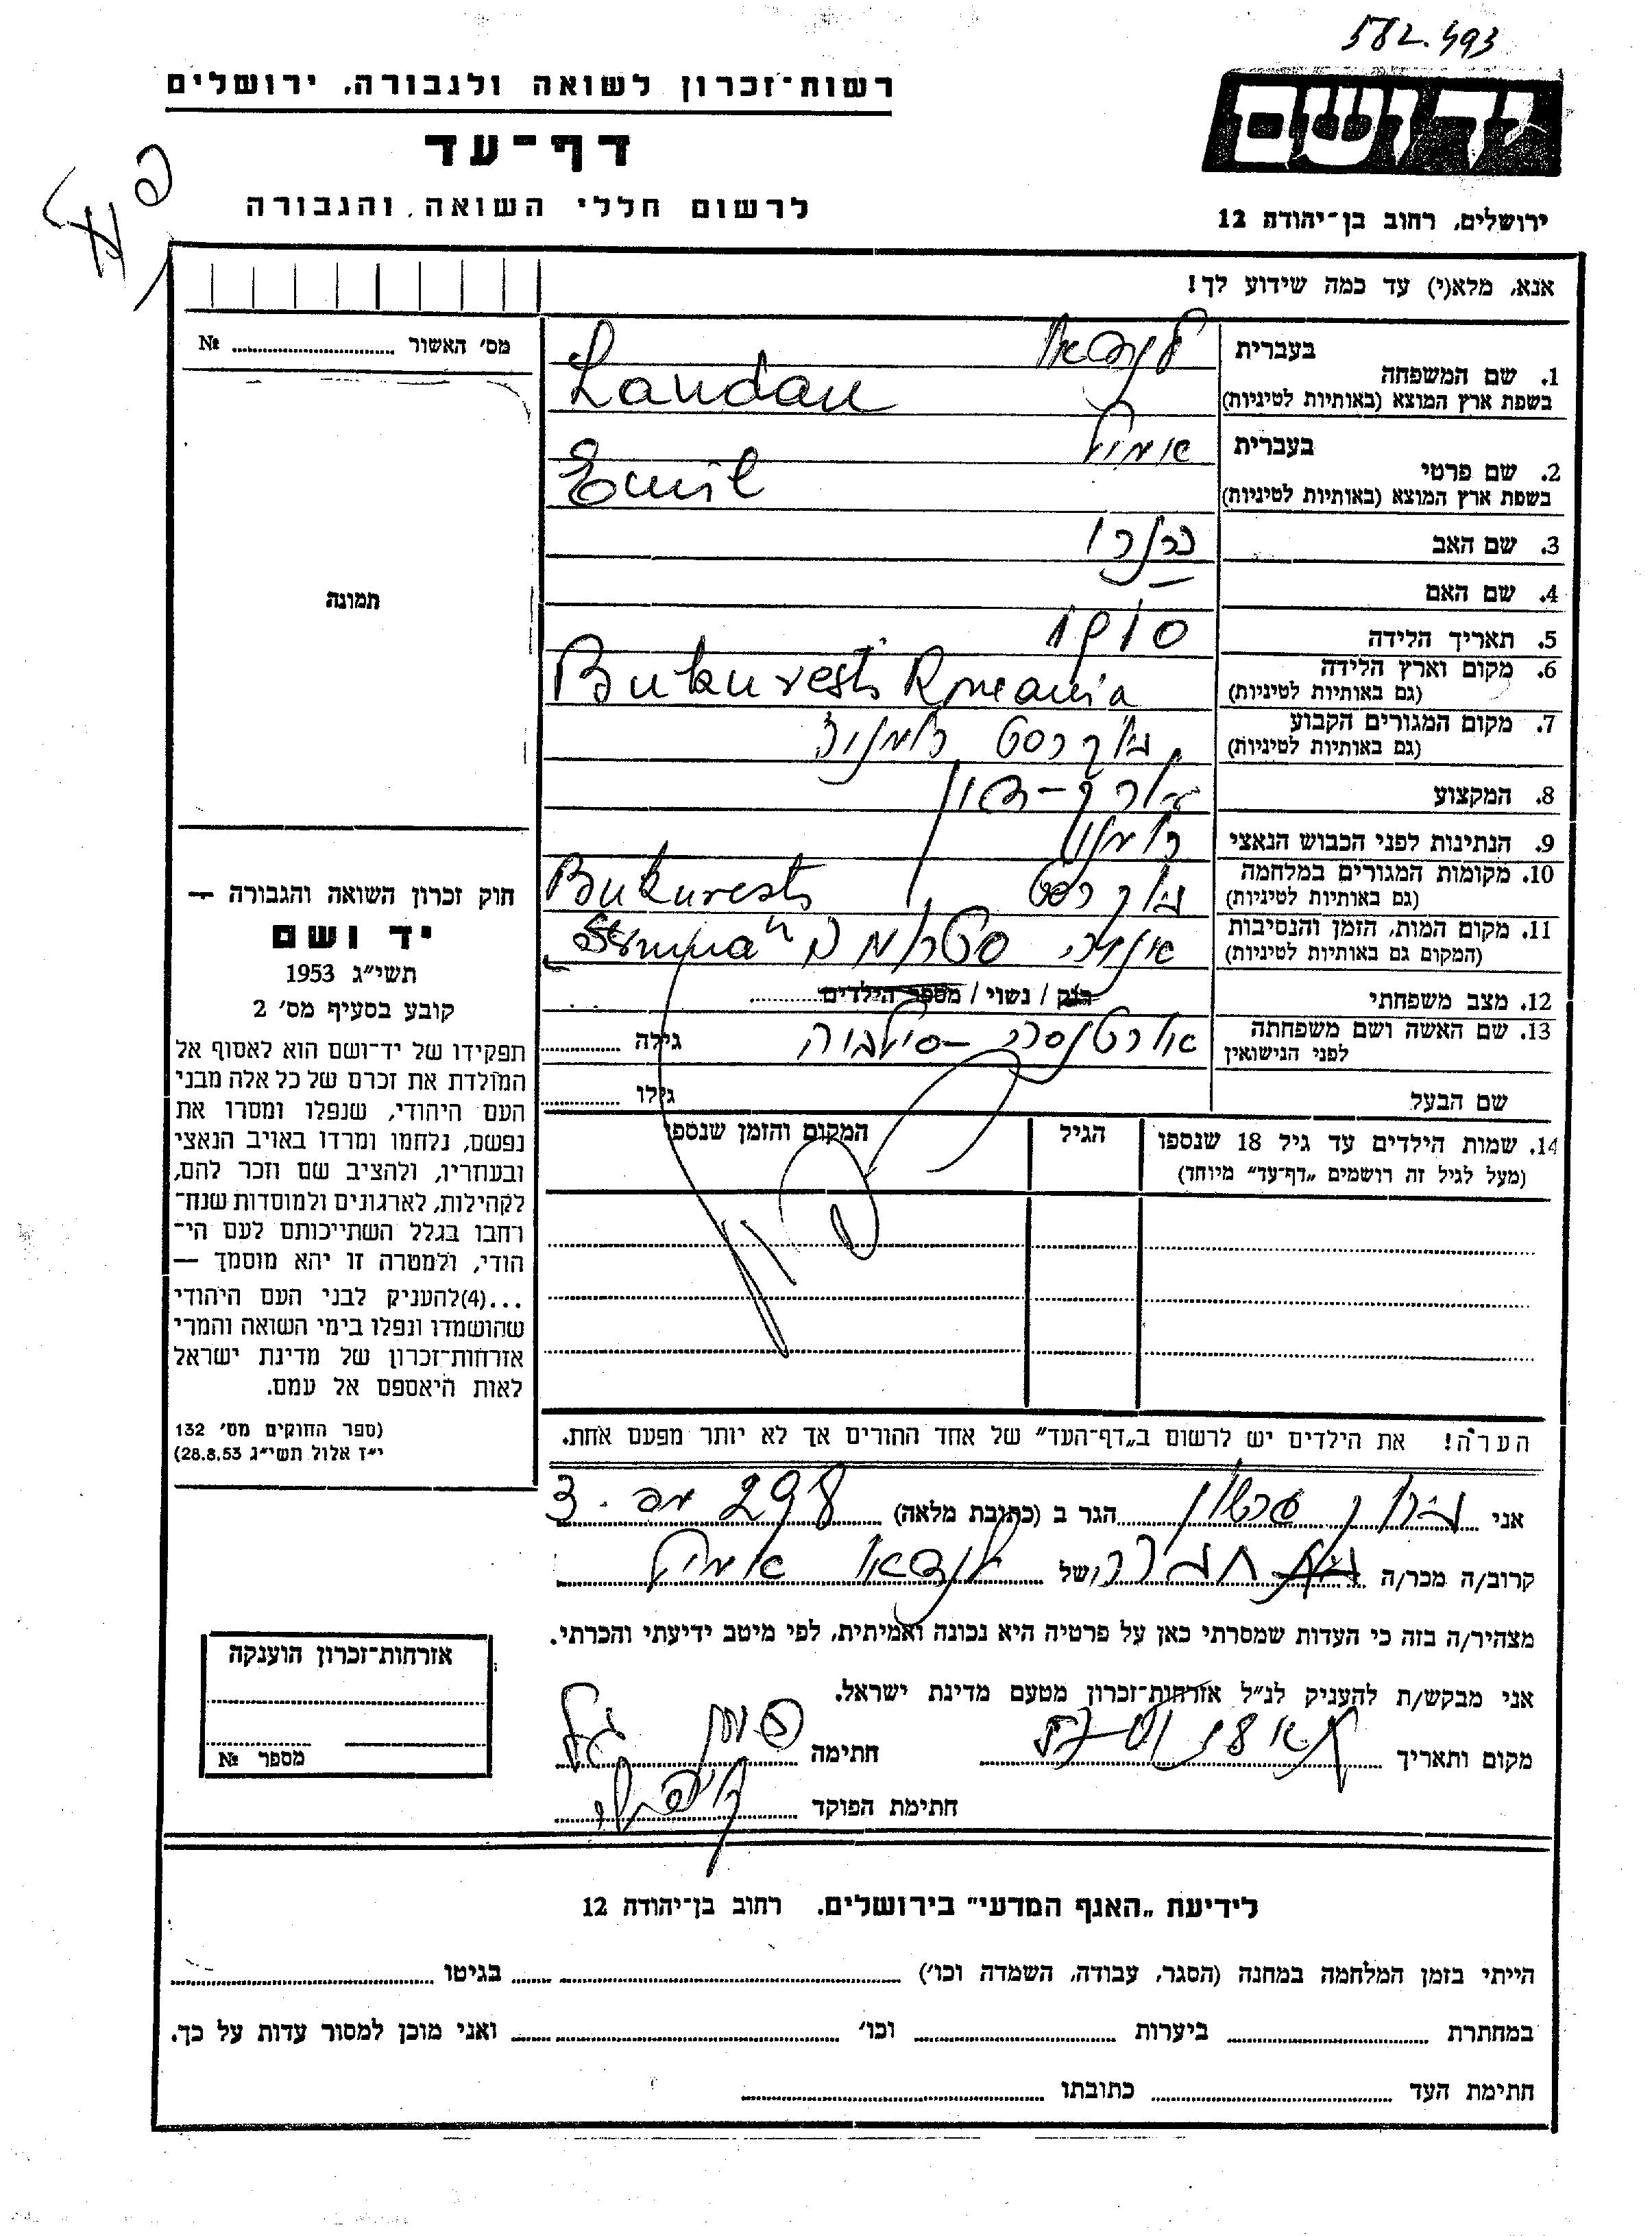 582.493
רשות־זכרון לשואה ולגבורה, ירושלים
יד ושם
דף־עד
לרשום חללי השואה והגבורה
ירושלים, רחוב בן־יהודה 12
אנא, מלא(י) עד כמה שידוע לך!
מס' האשור № 
1. שם המשפחה בעברית לנדאו
בשפת ארץ המוצא (באותיות לטיניות) Landau
2. שם פרטי בעברית אמיל
בשפת ארץ המוצא (באותיות לטיניות) Emil
3. שם האב
4. שם האם –
5. תאריך הלידה
6. מקום וארץ הלידה (גם באותיות לטיניות) Bukurest Romania
7. מקום המגורים הקבוע (גם באותיות לטיניות) בוקרסט רומניה
8. המקצוע עורך-דין
9. הנתינות לפני הכבוש הנאצי רומני
10. מקומות המגורים במלחמה (גם באותיות לטיניות) בוקרסט Bukurest
11. מקום המות, הזמן והנסיבות (המקום גם באותיות לטיניות) אוניה סטרומה "Struma"
12. מצב משפחתי רווק / נשוי / מספר הילדים
13. שם האשה ושם משפחתה לפני הנישואין גילה
שם הבעל גילו
14. שמות הילדים עד גיל 18 שנספו (מעל לגיל זה רושמים „דף־עד" מיוחד) הגיל המקום והזמן שנספו
הערה! את הילדים יש לרשום ב„דף־העד" של אחד ההורים אך לא יותר מפעם אחת.
תמונה
חוק זכרון השואה והגבורה —
יד ושם
תשי"ג 1953
קובע בסעיף מס' 2
תפקידו של יד־ושם הוא לאסוף אל
המולדת את זכרם של כל אלה מבני
העם היהודי, שנפלו ומסרו את
נפשם, נלחמו ומרדו באויב הנאצי
ובעוזריו, ולהציב שם וזכר להם,
לקהילות, לארגונים ולמוסדות שנח־
רחבו בגלל השתייכותם לעם הי־
הודי, ולמטרה זו יהא מוסמך —
...(4)להעניק לבני העם היהודי
שהושמדו ונפלו בימי השואה והמרי
אזרחות־זכרון של מדינת ישראל
לאות היאספם אל עמם.
(ספר החוקים מס' 132
י"ז אלול תשי"ג 28.8.53)
אני הגר ב (כתובת מלאה)
קרוב/ה מכר/ה של לנדאו אמיל
מצהיר/ה בזה כי העדות שמסרתי כאן על פרטיה היא נכונה ואמיתית, לפי מיטב ידיעתי והכרתי.
אני מבקש/ת להעניק לנ"ל אזרחות־זכרון מטעם מדינת ישראל.
מקום ותאריך חתימה
חתימת הפוקד
אזרחות־זכרון הוענקה
מספר №
לידיעת „האגף המדעי" בירושלים, רחוב בן־יהודה 12
הייתי בזמן המלחמה במחנה (הסגר, עבודה, השמדה וכו') בגיטו
במחתרת ביערות וכו' ואני מוכן למסור עדות על כך.
חתימת העד כתובתו